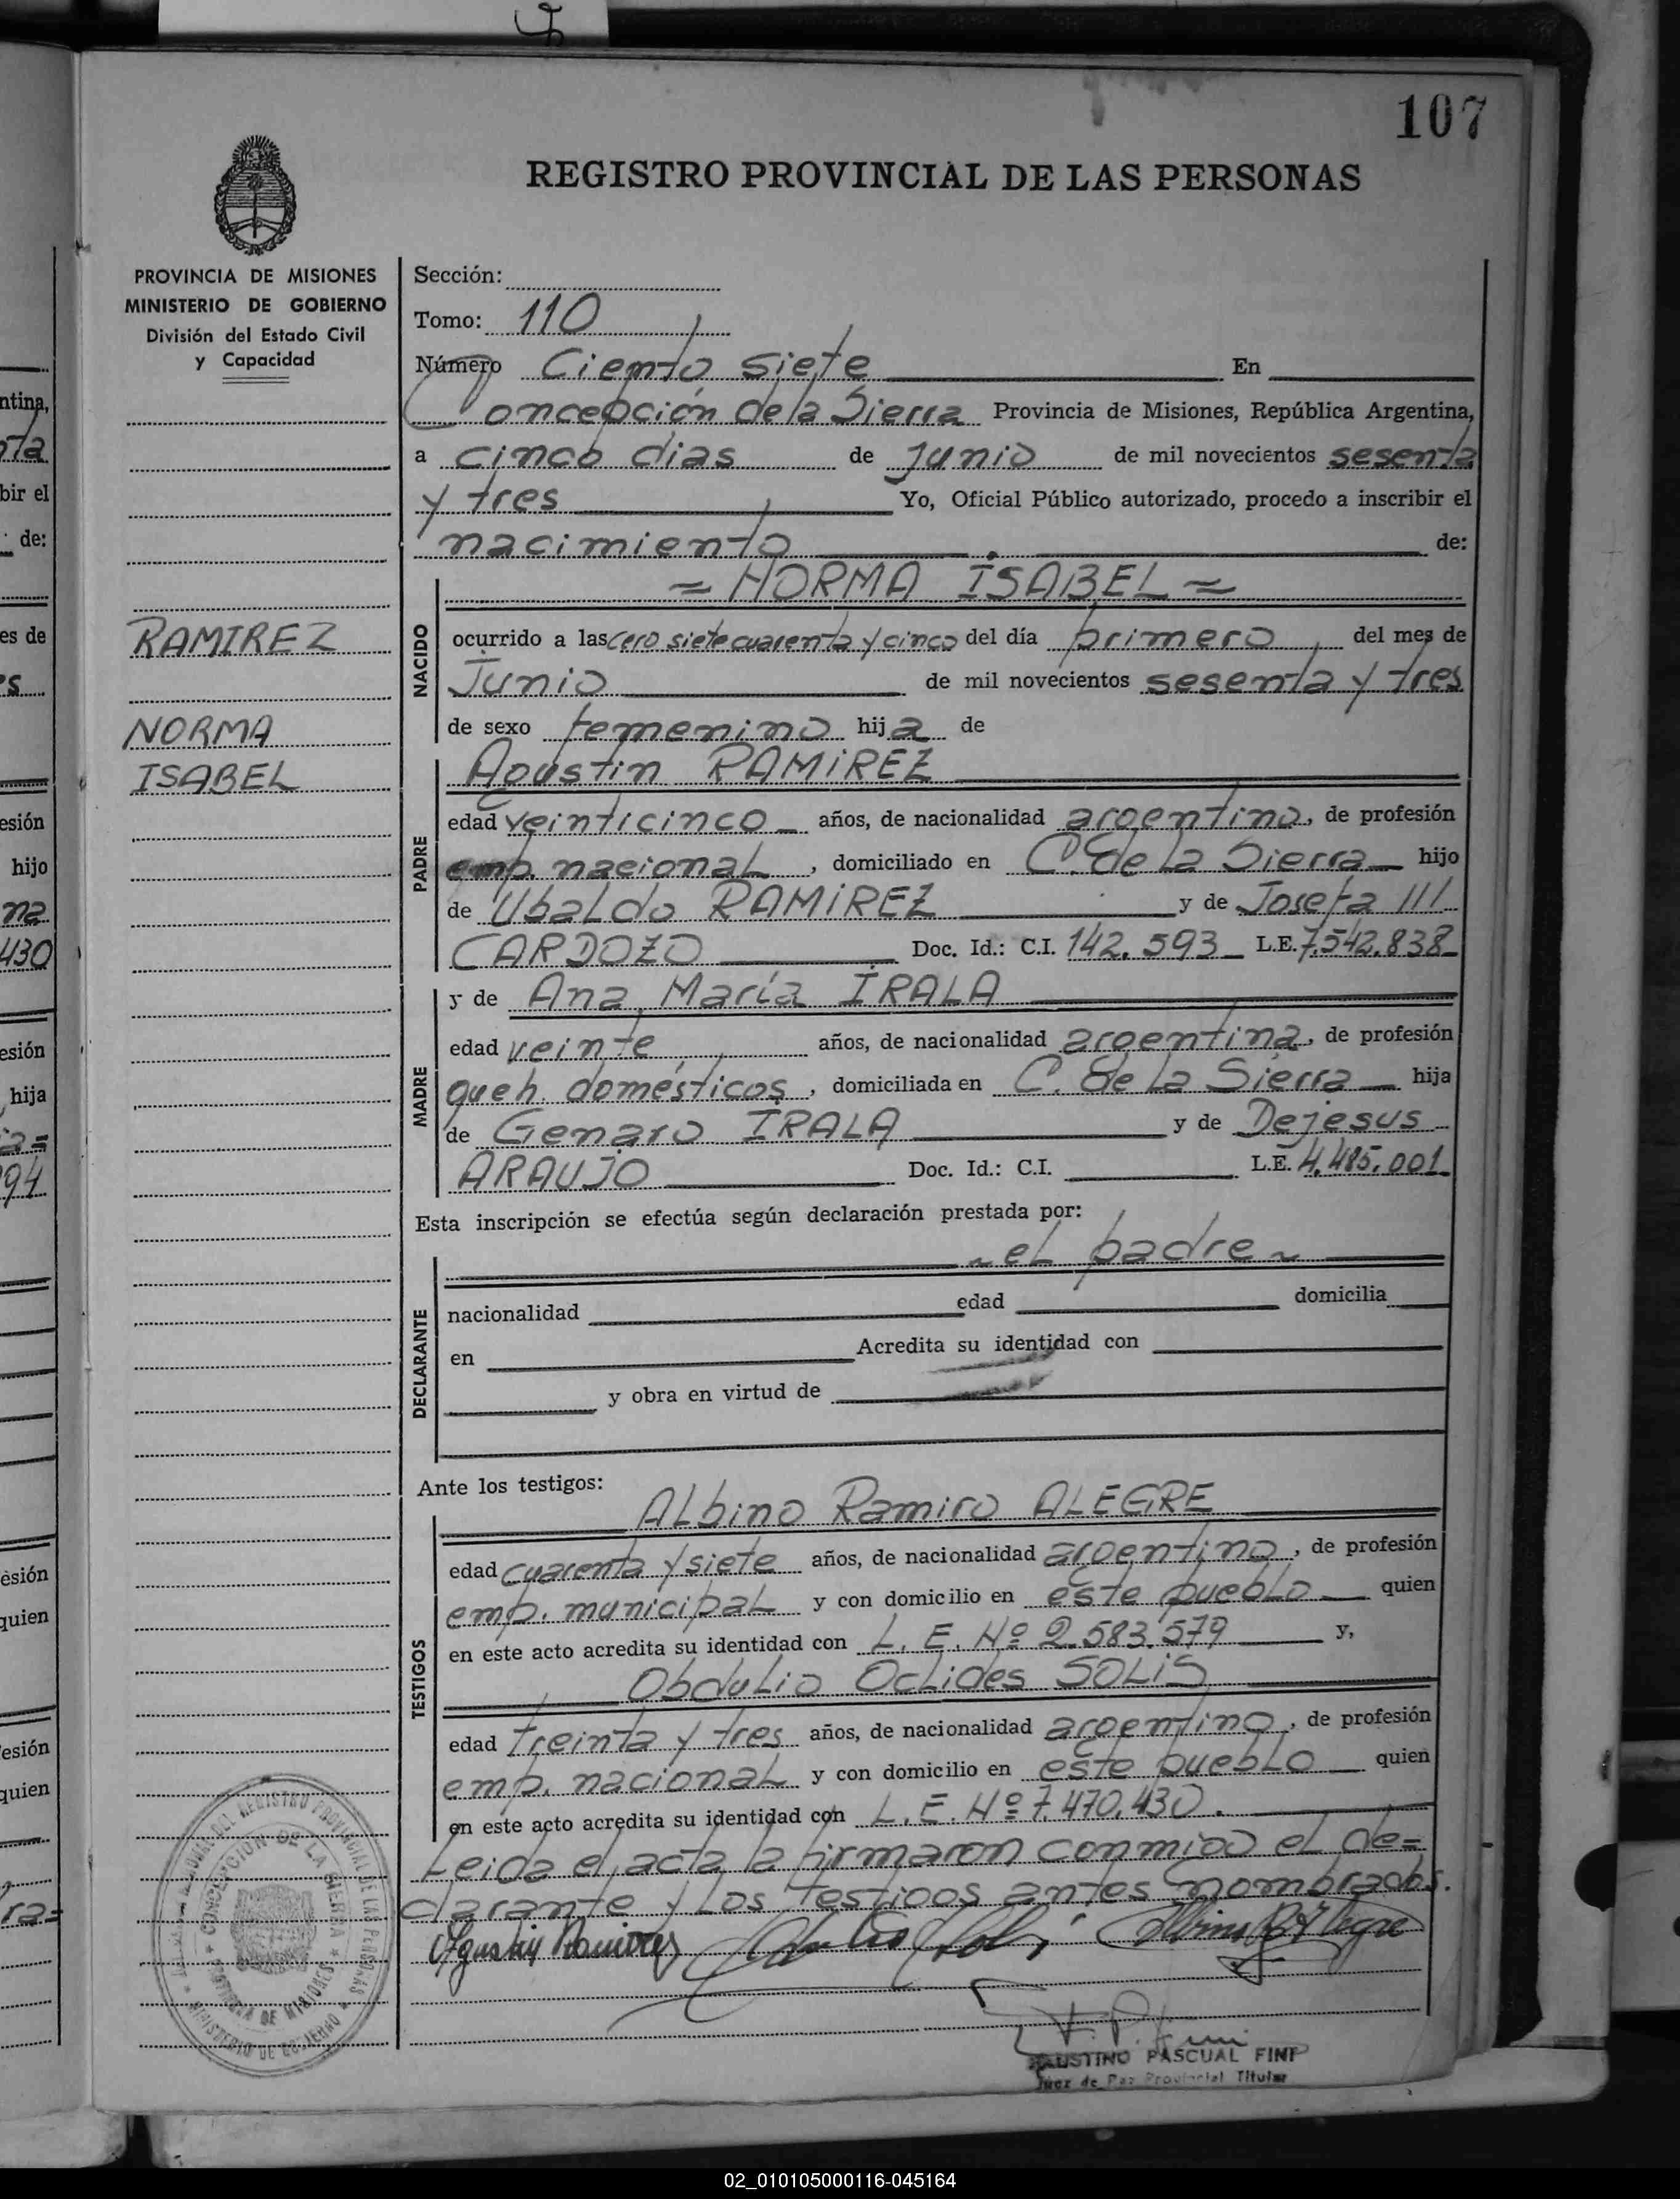 107
REGISTRO PROVINCIAL DE LAS PERSONAS
PROVINCIA DE MISIONES
MINISTERIO DE GOBIERNO
División del Estado Civil
y Capacidad
RAMIREZ
NORMA
ISABEL
Sección:
Tomo: 110
Número Ciento siete En
Concepción de la Sierra Provincia de Misiones, República Argentina,
a cinco dias de junio de mil novecientos sesenta
y tres Yo, Oficial Público autorizado, procedo a inscribir el
nacimiento de:
= NORMA ISABEL =
NACIDO
ocurrido a las cero siete cuarenta y cinco del día primero del mes de
Junio de mil novecientos sesenta y tres
de sexo femenino hija de
PADRE
Agustin RAMIREZ
edad veinticinco años, de nacionalidad argentino, de profesión
emp. nacional, domiciliado en C. de la Sierra hijo
de Ubaldo RAMIREZ y de Josefa ///
CARDOZO Doc. Id.: C.I. 142.593 L.E. 7.542.838
MADRE
y de Ana María IRALA
edad veinte años, de nacionalidad argentina, de profesión
queh. domésticos, domiciliada en C. de la Sierra hija
de Genaro IRALA y de Dejesus
ARAUJO Doc. Id.: C.I. L.E. 4.485.001
Esta inscripción se efectúa según declaración prestada por:
~ el padre ~
DECLARANTE
nacionalidad edad domicilia
en Acredita su identidad con
y obra en virtud de
Ante los testigos:
TESTIGOS
Albino Ramiro ALEGRE
edad cuarenta y siete años, de nacionalidad argentino, de profesión
emp. municipal y con domicilio en este pueblo quien
en este acto acredita su identidad con L. E. Nº 2.583.579 y,
Obdulio Oclides SOLIS
edad treinta y tres años, de nacionalidad argentino, de profesión
emp. nacional y con domicilio en este pueblo quien
en este acto acredita su identidad con L. E. Nº 7.470.430.
Leida el acta la firmaron conmigo el de=
clarante y los testigos antes nombrados.
Agustin Ramirez
Albino R Alegre
F. P. Fini
FAUSTINO PASCUAL FINI
Juez de Paz Provincial Titular
CONCEPCION DE LA SIERRA
PROVINCIA DE MISIONES
MINISTERIO DE GOBIERNO
02_010105000116-045164